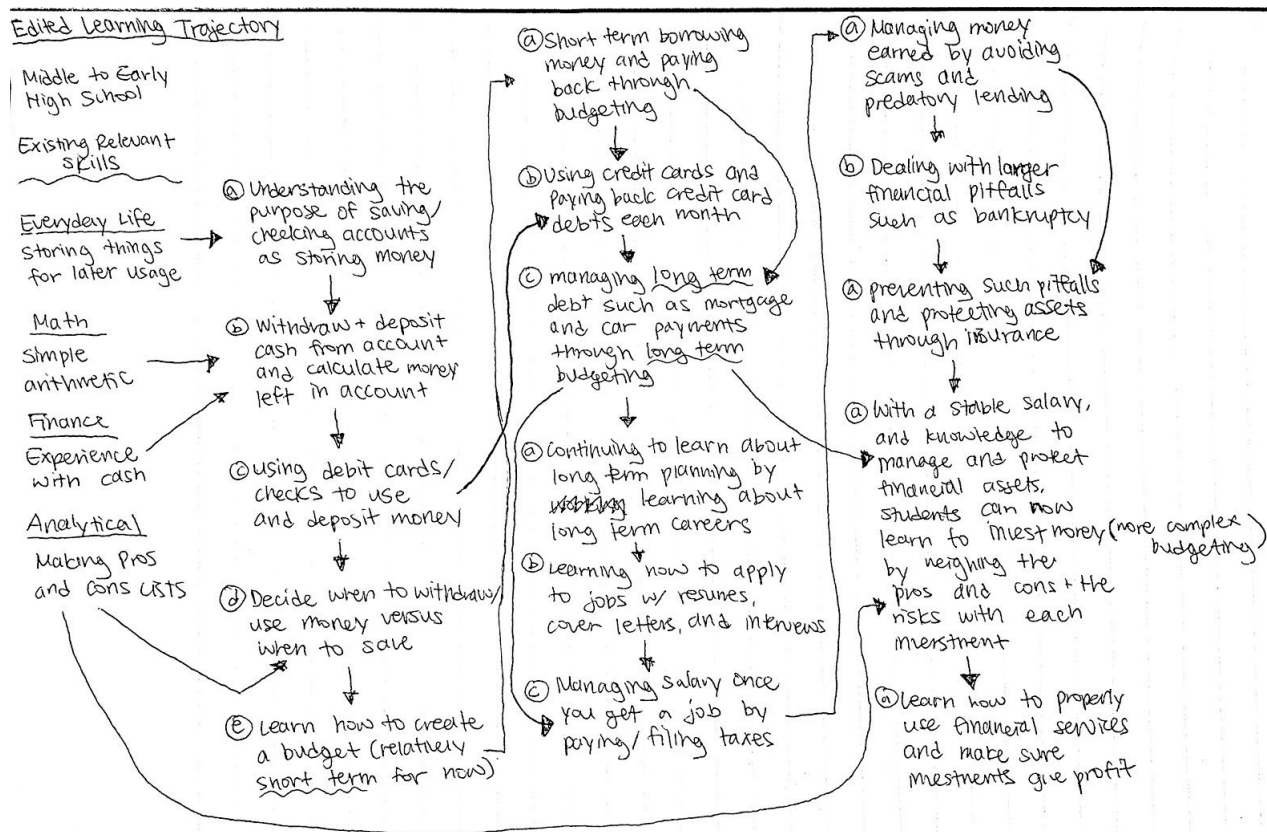 Edited Learning Trajectory
Middle to Early
High School
Existing Relevant
Skills
Everyday Life
storing things
for later usage
Math
Simple
arithmetic
Finance
Experience
with cash
Analytical
Making Pros
and cons Lists
ⓐ Understanding the
purpose of saving/
checking accounts
as storing money
ⓑ Withdraw + deposit
cash from account
and calculate money
left in account
ⓒ Using debit cards/
checks to use
and deposit money
ⓓ Decide when to withdraw/
use money versus
when to save
ⓔ Learn how to create
a budget (relatively
short term for now)
ⓐ Short term borrowing
money and paying
back through
budgeting
ⓑ Using credit cards and
paying back credit card
debts each month
ⓒ managing long term
debt such as mortgage
and car payments
through long term
budgeting
ⓐ Continuing to learn about
long term planning by
learning about
long term careers
ⓑ Learning how to apply
to jobs w/ resumes,
cover letters, and interviews
ⓒ Managing salary once
you get a job by
paying/filing taxes
ⓐ Managing money
earned by avoiding
scams and
predatory lending
ⓑ Dealing with larger
financial pitfalls
such as bankruptcy
ⓐ preventing such pitfalls
and protecting assets
through insurance
ⓐ With a stable salary,
and knowledge to
manage and protect
financial assets,
students can now
learn to invest money (more complex
budgeting)
by weighing the
pros and cons + the
risks with each
investment
ⓐ Learn how to properly
use financial services
and make sure
investments give profit